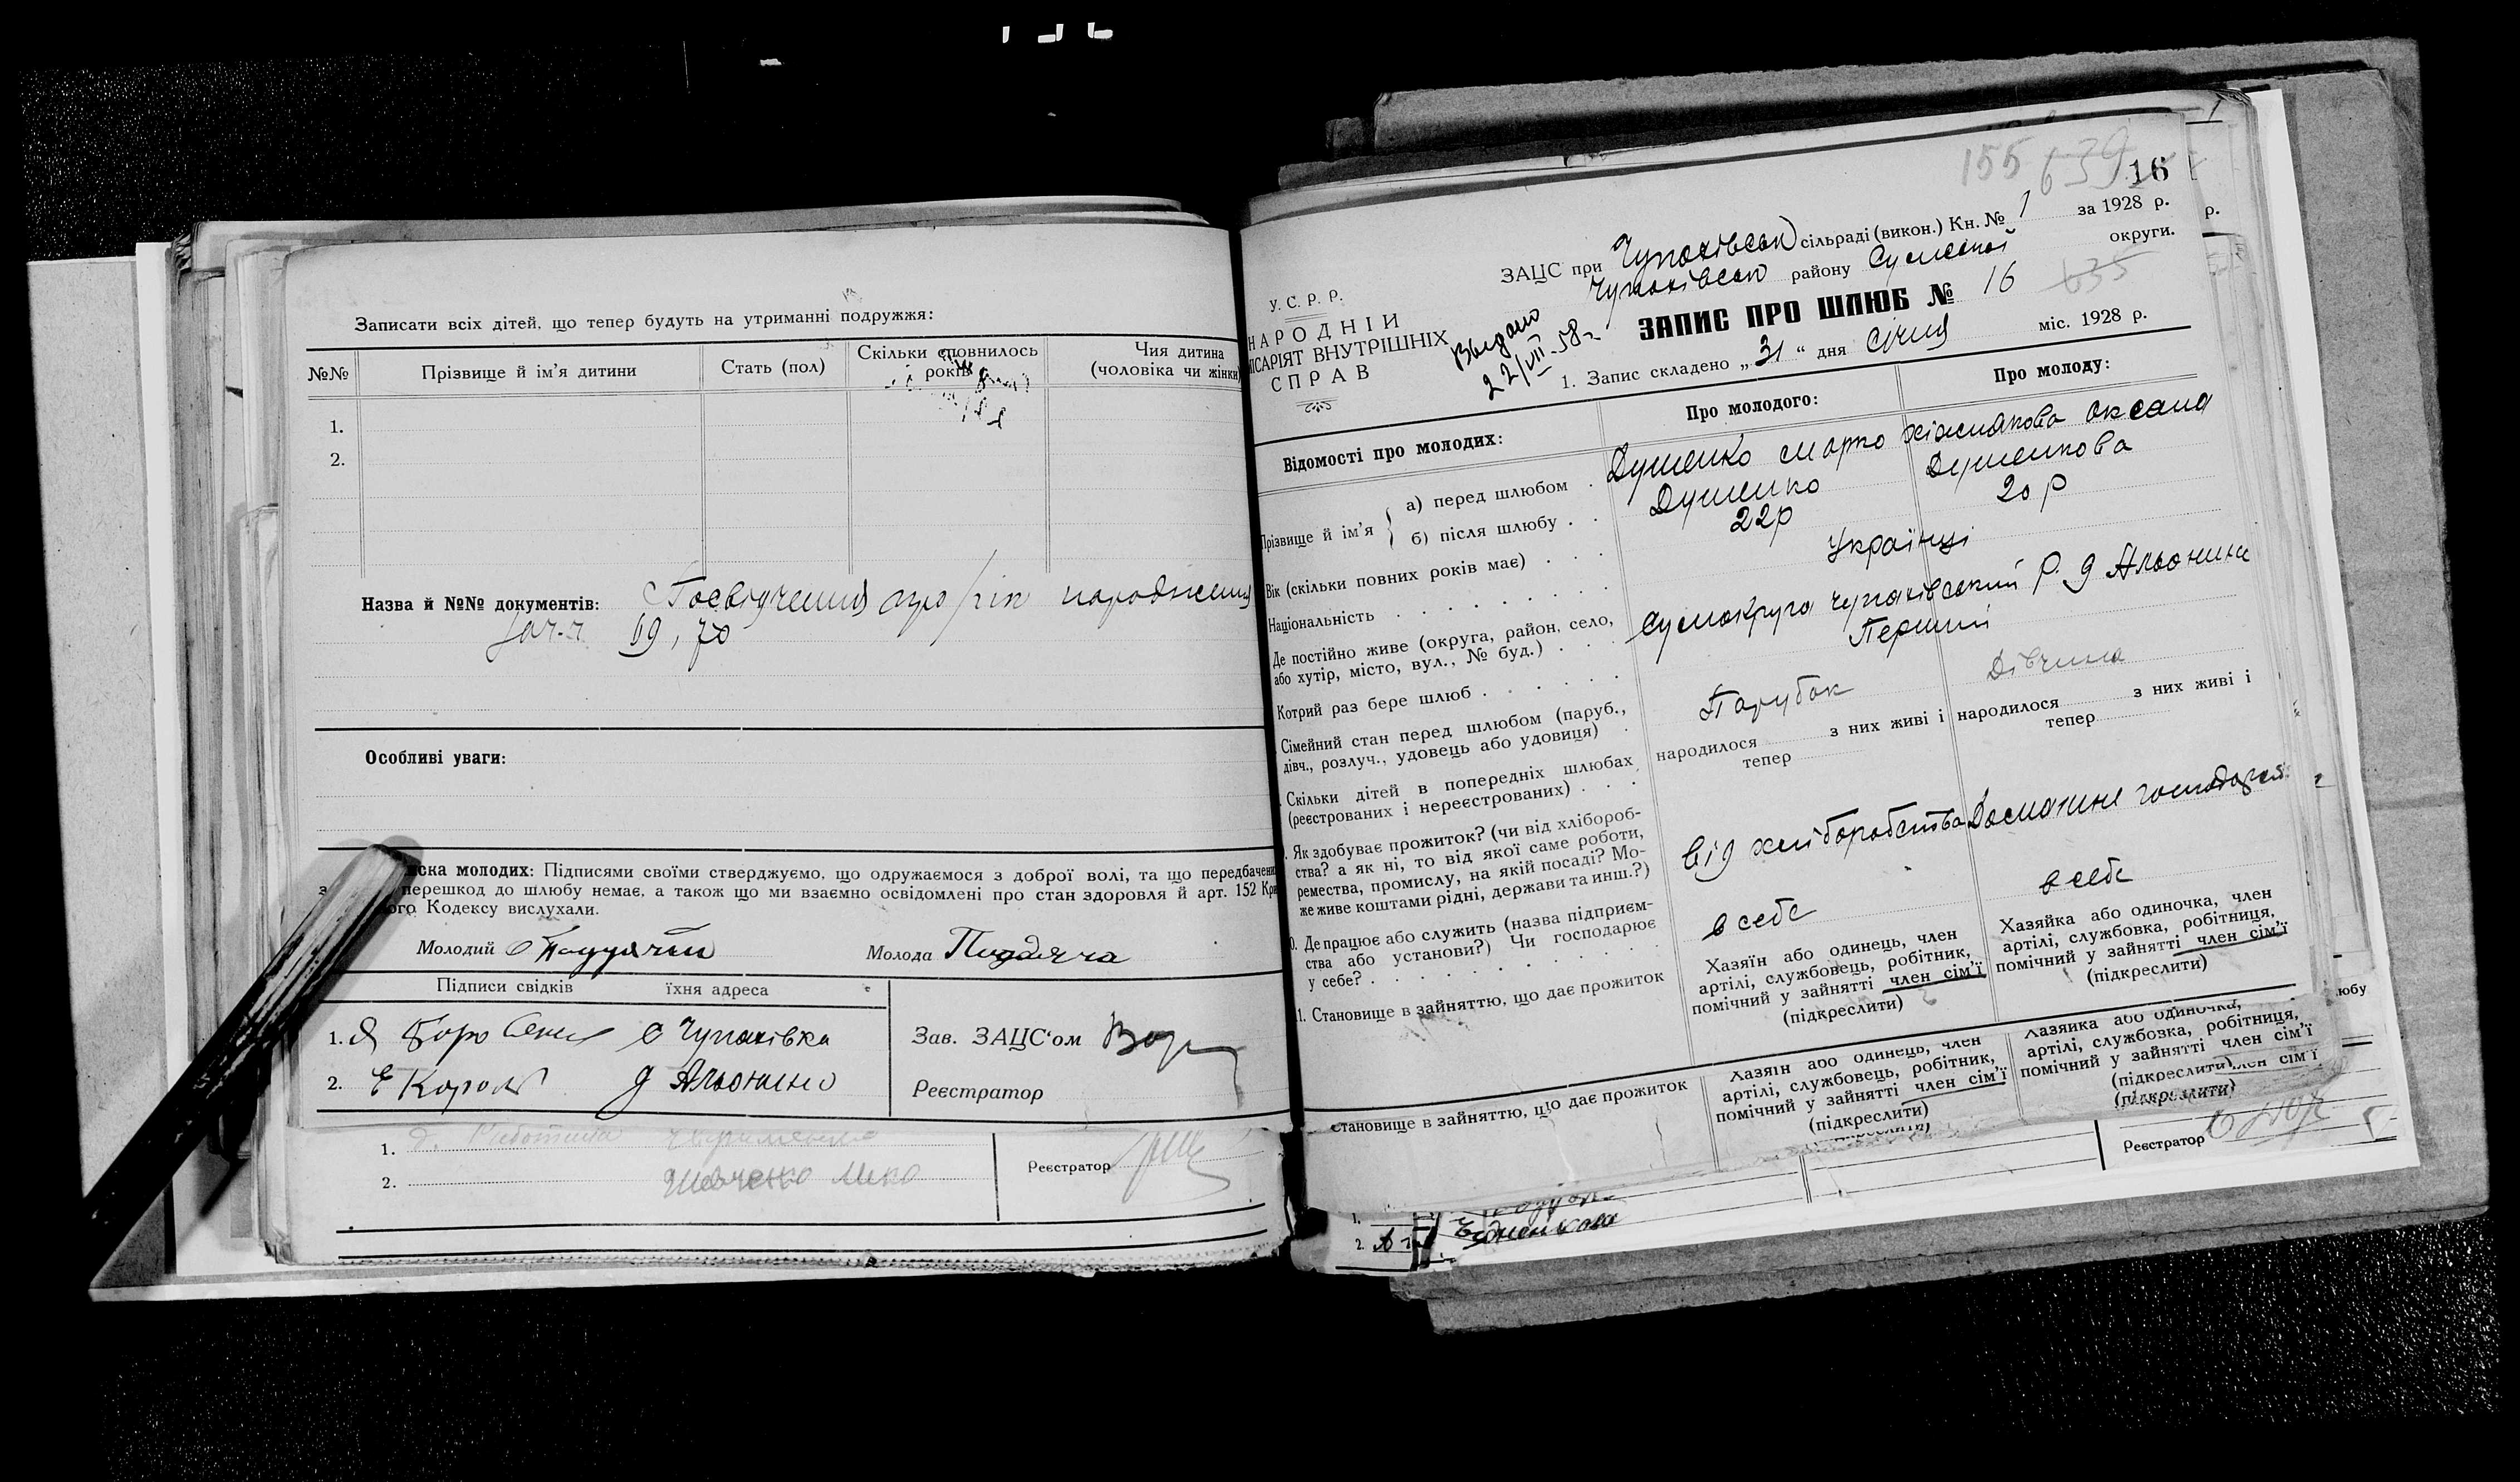 Записати всіх дітей, що тепер будуть на утриманні подружжя:
№№ Прізвище й ім'я дитини Стать (пол) Скільки сповнилось років Чия дитина (чоловіка чи жінки)
1.
2.
Назва й №№ документів: Посвідчення про рік народження
69, 70
Особливі уваги:
иска молодих: Підписями своїми стверджуємо, що одружаємося з доброї волі, та що передбачени
перешкод до шлюбу немає, а також що ми взаємно освідомлені про стан здоровля й арт. 152 Кри
ого Кодексу вислухали.
Молодий Молода
Підписи свідків їхня адреса
1. Я с Чупахівка
2. Е Король д Альонино
Зав. ЗАЦС'ом
Реєстратор
1.
2. Шевченко
Реєстратор
155 639
16
ЗАЦС при Чупахівськ сільраді (викон.) Кн. № 1 за 1928 р.
Чупахівськ району Сумської округи.
У. С. Р. Р.
НАРОДНІЙ
ІСАРІЯТ ВНУТРІШНІХ
СПРАВ
Выдано
22/VII-58 г
ЗАПИС ПРО ШЛЮБ № 16 635
1. Запис складено „31“ дня Січня міс. 1928 р.
Відомості про молодих: Про молодого: Про молоду:
Прізвище й ім'я { а) перед шлюбом . Душенко Марко Хіжнякова Оксана
б) після шлюбу . . Душенко Душенкова
Вік (скільки повних років має) . . . 22р 20р
Національність . . . . . . . . . Українці
Де постійно живе (округа, район, село,
або хутір, місто, вул., № буд.) . . . Сумокруга Чупахівський р. д Альонине
Котрий раз бере шлюб . . . . . . Перший
Сімейний стан перед шлюбом (паруб.,
дівч., розлуч., удовець або удовиця) . Парубок Дівчина
Скільки дітей в попередніх шлюбах
(реєстрованих і нереєстрованих) . . .
народилося з них живі і
тепер
народилося з них живі і
тепер
. Як здобуває прожиток? (чи від хлібороб-
ства? а як ні, то від якої саме роботи,
ремества, промислу, на якій посаді? Мо-
же живе коштами рідні, держави та инш.?)
від хліборобства Домашнє господарся
0. Де працює або служить (назва підприєм-
ства або установи?) Чи господарює
у себе? . . . . . . . . . .
в себе в себе
1. Становище в зайняттю, що дає прожиток
Хазяїн або одинець, член
артілі, службовець, робітник,
помічний у зайнятті член сім'ї
(підкреслити)
Хазяйка або одиночка, член
артілі, службовка, робітниця,
помічний у зайнятті член сім'ї
(підкреслити)
Становище в зайняттю, що дає прожиток
Хазяїн або одинець, член
артілі, службовець, робітник,
помічний у зайнятті член сім'ї
(підкреслити)
Хазяйка або одиночка,
артілі, службовка, робітниця,
помічний у зайнятті член сім'ї
(підкреслити)
член сім'ї
(підкреслити)
любу
Реєстратор
1.
2.
р.